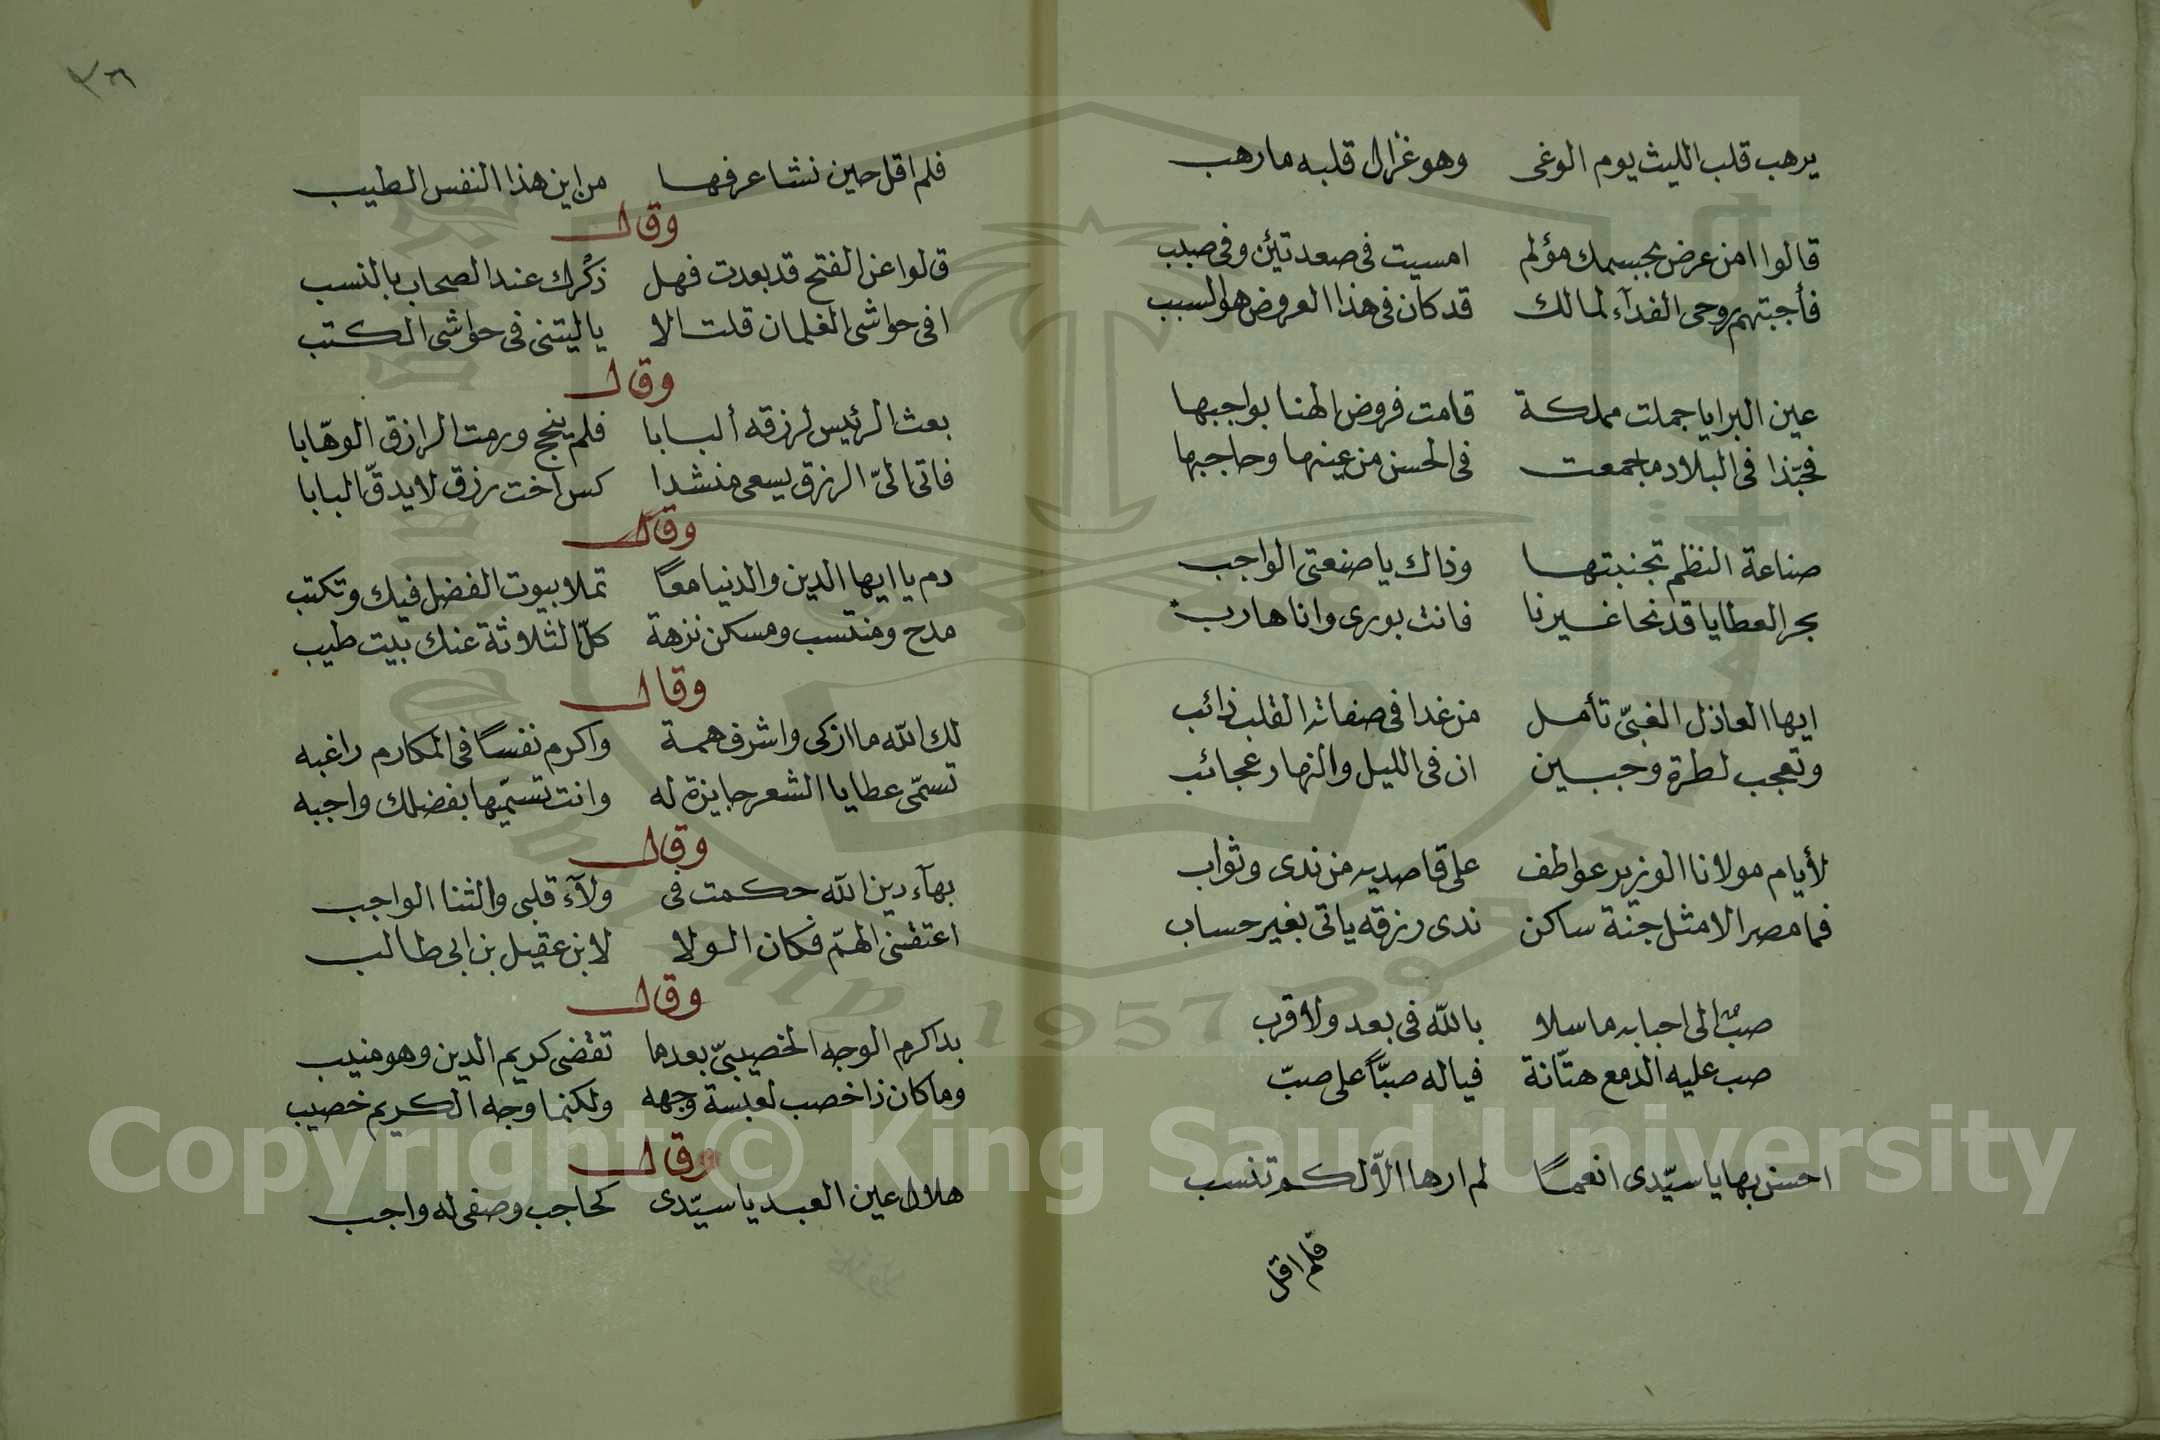 يرهب قلب الليث يوم الوغى وهو غزال قلبه ما رهب
قالوا امن عرض بجسمك مؤلم امسيت فى صعد تئن وفى صبب
فأجبتهم روحى الفدآء لمالك قد كان فى هذا العروض هو السبب
عين البرايا جملت مملكة قامت فروض الهنا بواجبها
فحبّذا فى البلاد ما جمعت فى الحسن من عينها وحاجبها
صناعة النظم تجنبتها وذاك يا صنعتى الواجب
بحر العطايا قد نحا غيرنا فانت بورى وانا هارب
ايها العاذل الغبىّ تأمل من غدا فى صفاته القلب ذائب
وتعجب لطرة وجبين ان فى الليل والنهار عجائب
لأيام مولانا الوزير عواطف على قاصديه من ندى وثواب
فما مصر الا مثل جنة ساكن ندى رزقه ياتى بغير حساب
صبٌ الى احبابه ما سلا بالله فى بعد ولا قرب
صب عليه الدمع هتّانة فياله صبًّا على صبّ
احسن بها يا سيّدى انعمًا لم ارها الاّ لكم تنسب
فلم اقل
٣٢٦
فلم اقل حين نشا عرفها من اين هذا النفس الطيب
وقال
قالوا عن الفتح قد بعدت فهل ذكْرك عند الصحاب بالنسب
افى حواشى الغلمان قلت الا يا ليتنى فى حواشى الكتب
وقال
بعث الرئيس لرزقه ألبابا فلم ينجح ورمت الرازق الوهّابا
فاتى الىّ الرزق يسعى منشدا كس اخت رزق لا يدقّ البابا
وقال
دم يا ايها الدين والدنيا معًا تملا بيوت الفضل فيك وتكتب
مدح ومنتسب ومسكن نزهة كلّ الثلاثة عنك بيت طيب
وقال
لك الله ما ازكى واشرف همة واكرم نفسًا فى المكارم راغبه
تسمّى عطايا الشعر جايزة له وانت تسمّيها بفضلك واجبه
وقال
بهآء دين الله حكمت فى ولآء قلبى والثنا الواجب
اعتقنى الهمّ فكان الولا لابن عقيل بن ابى طالب
وقال
بدا كرم الوجه الخصيبىّ بعدما تقضى كريم الدين وهو منيب
وما كان ذا خصب لعبسة وجهه ولكنما وجه الكريم خصيب
وقال
هلال عين العبد يا سيّدى كحاجب وصفى له واجب
1957
Copyright © King Saud University